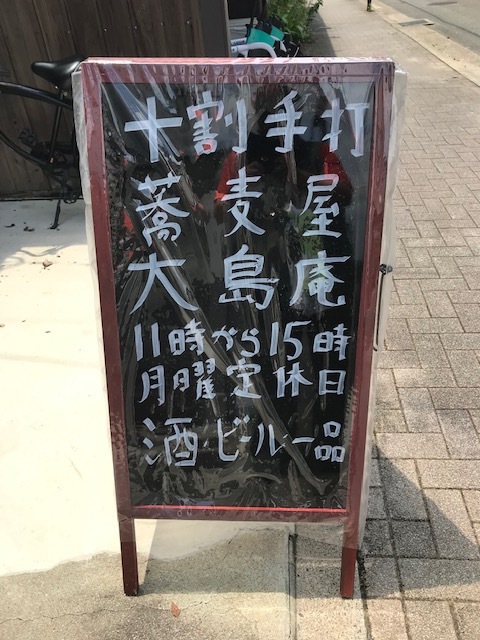 十割手打
蕎麦屋
大島庵
11時から15時
月曜定休日
酒ビール一品